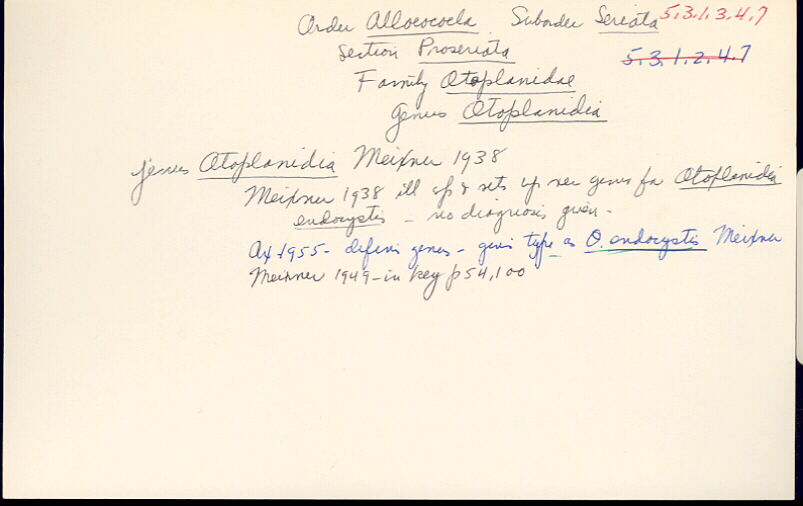 Order Alloeocoela Suborder Seriata 5.3.1.3.4.7
Section Proseriata 5.3.1.2.4.7
Family Otoplanidae
Genus Otoplanidia
genus Otoplanidia Meixner 1938
Meixner 1938 ill sp & sets up new genus for Otoplanidia
endocystis - no diagnosis given.
Ax 1955 - defines genus - gives type as O. endocystis Meixner
Meixner 1949 - in key p 54, 100